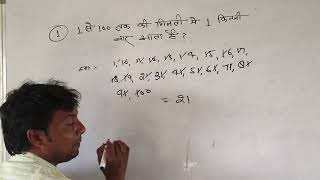 ① 1 से 100 तक की गिनती मे 1 कितनी
बार आता है?
1, 10, 11, 12, 13, 14, 15, 16, 17,
18, 19, 21, 31, 41, 51, 61, 71, 81
91, 100
= 21